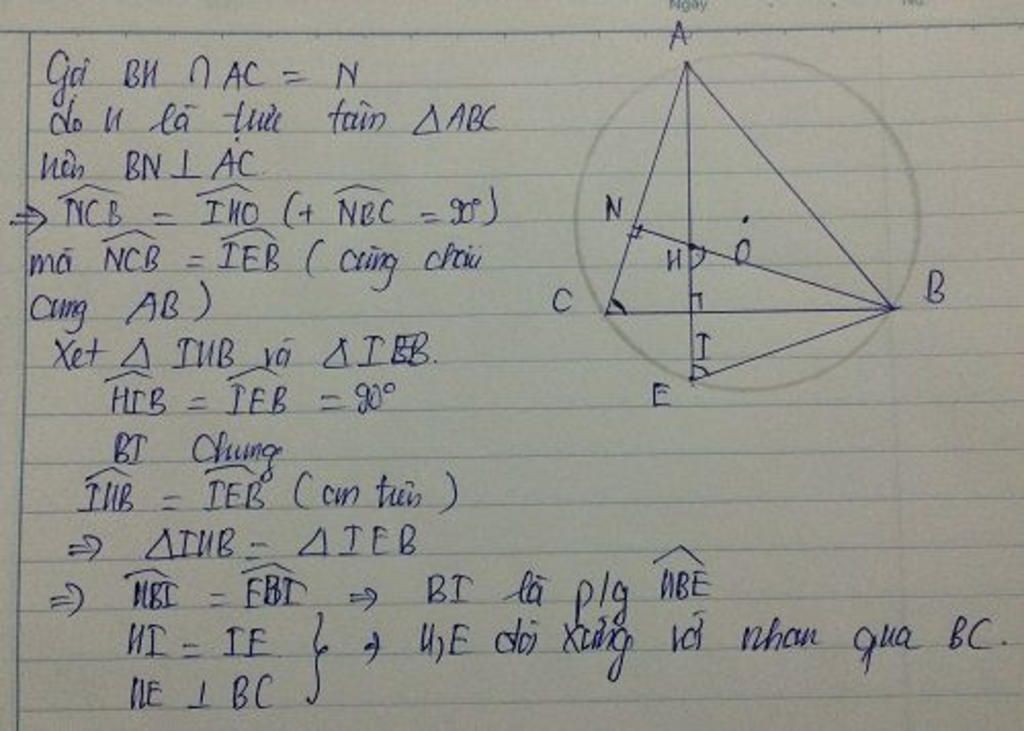 Ngày No
Gọi BH ∩ AC = N
do H là trực tâm ΔABC
nên BN ⊥ AC.
⇒ \widehat{NCB} = \widehat{IHO} (+ \widehat{NBC} = 90°)
mà \widehat{NCB} = \widehat{IEB} ( cùng chắn
cung AB )
Xét Δ IHB và Δ IEB.
\widehat{HIB} = \widehat{IEB} = 90°
BI Chung
\widehat{IHB} = \widehat{IEB} ( cm trên )
⇒ ΔIHB = Δ IEB
⇒ \widehat{HBI} = \widehat{EBI} ⇒ BI là p/g \widehat{HBE}
HI = IE } ⇒ H,E đối xứng với nhau qua BC.
HE ⊥ BC
A
N
H
O
C
B
I
E